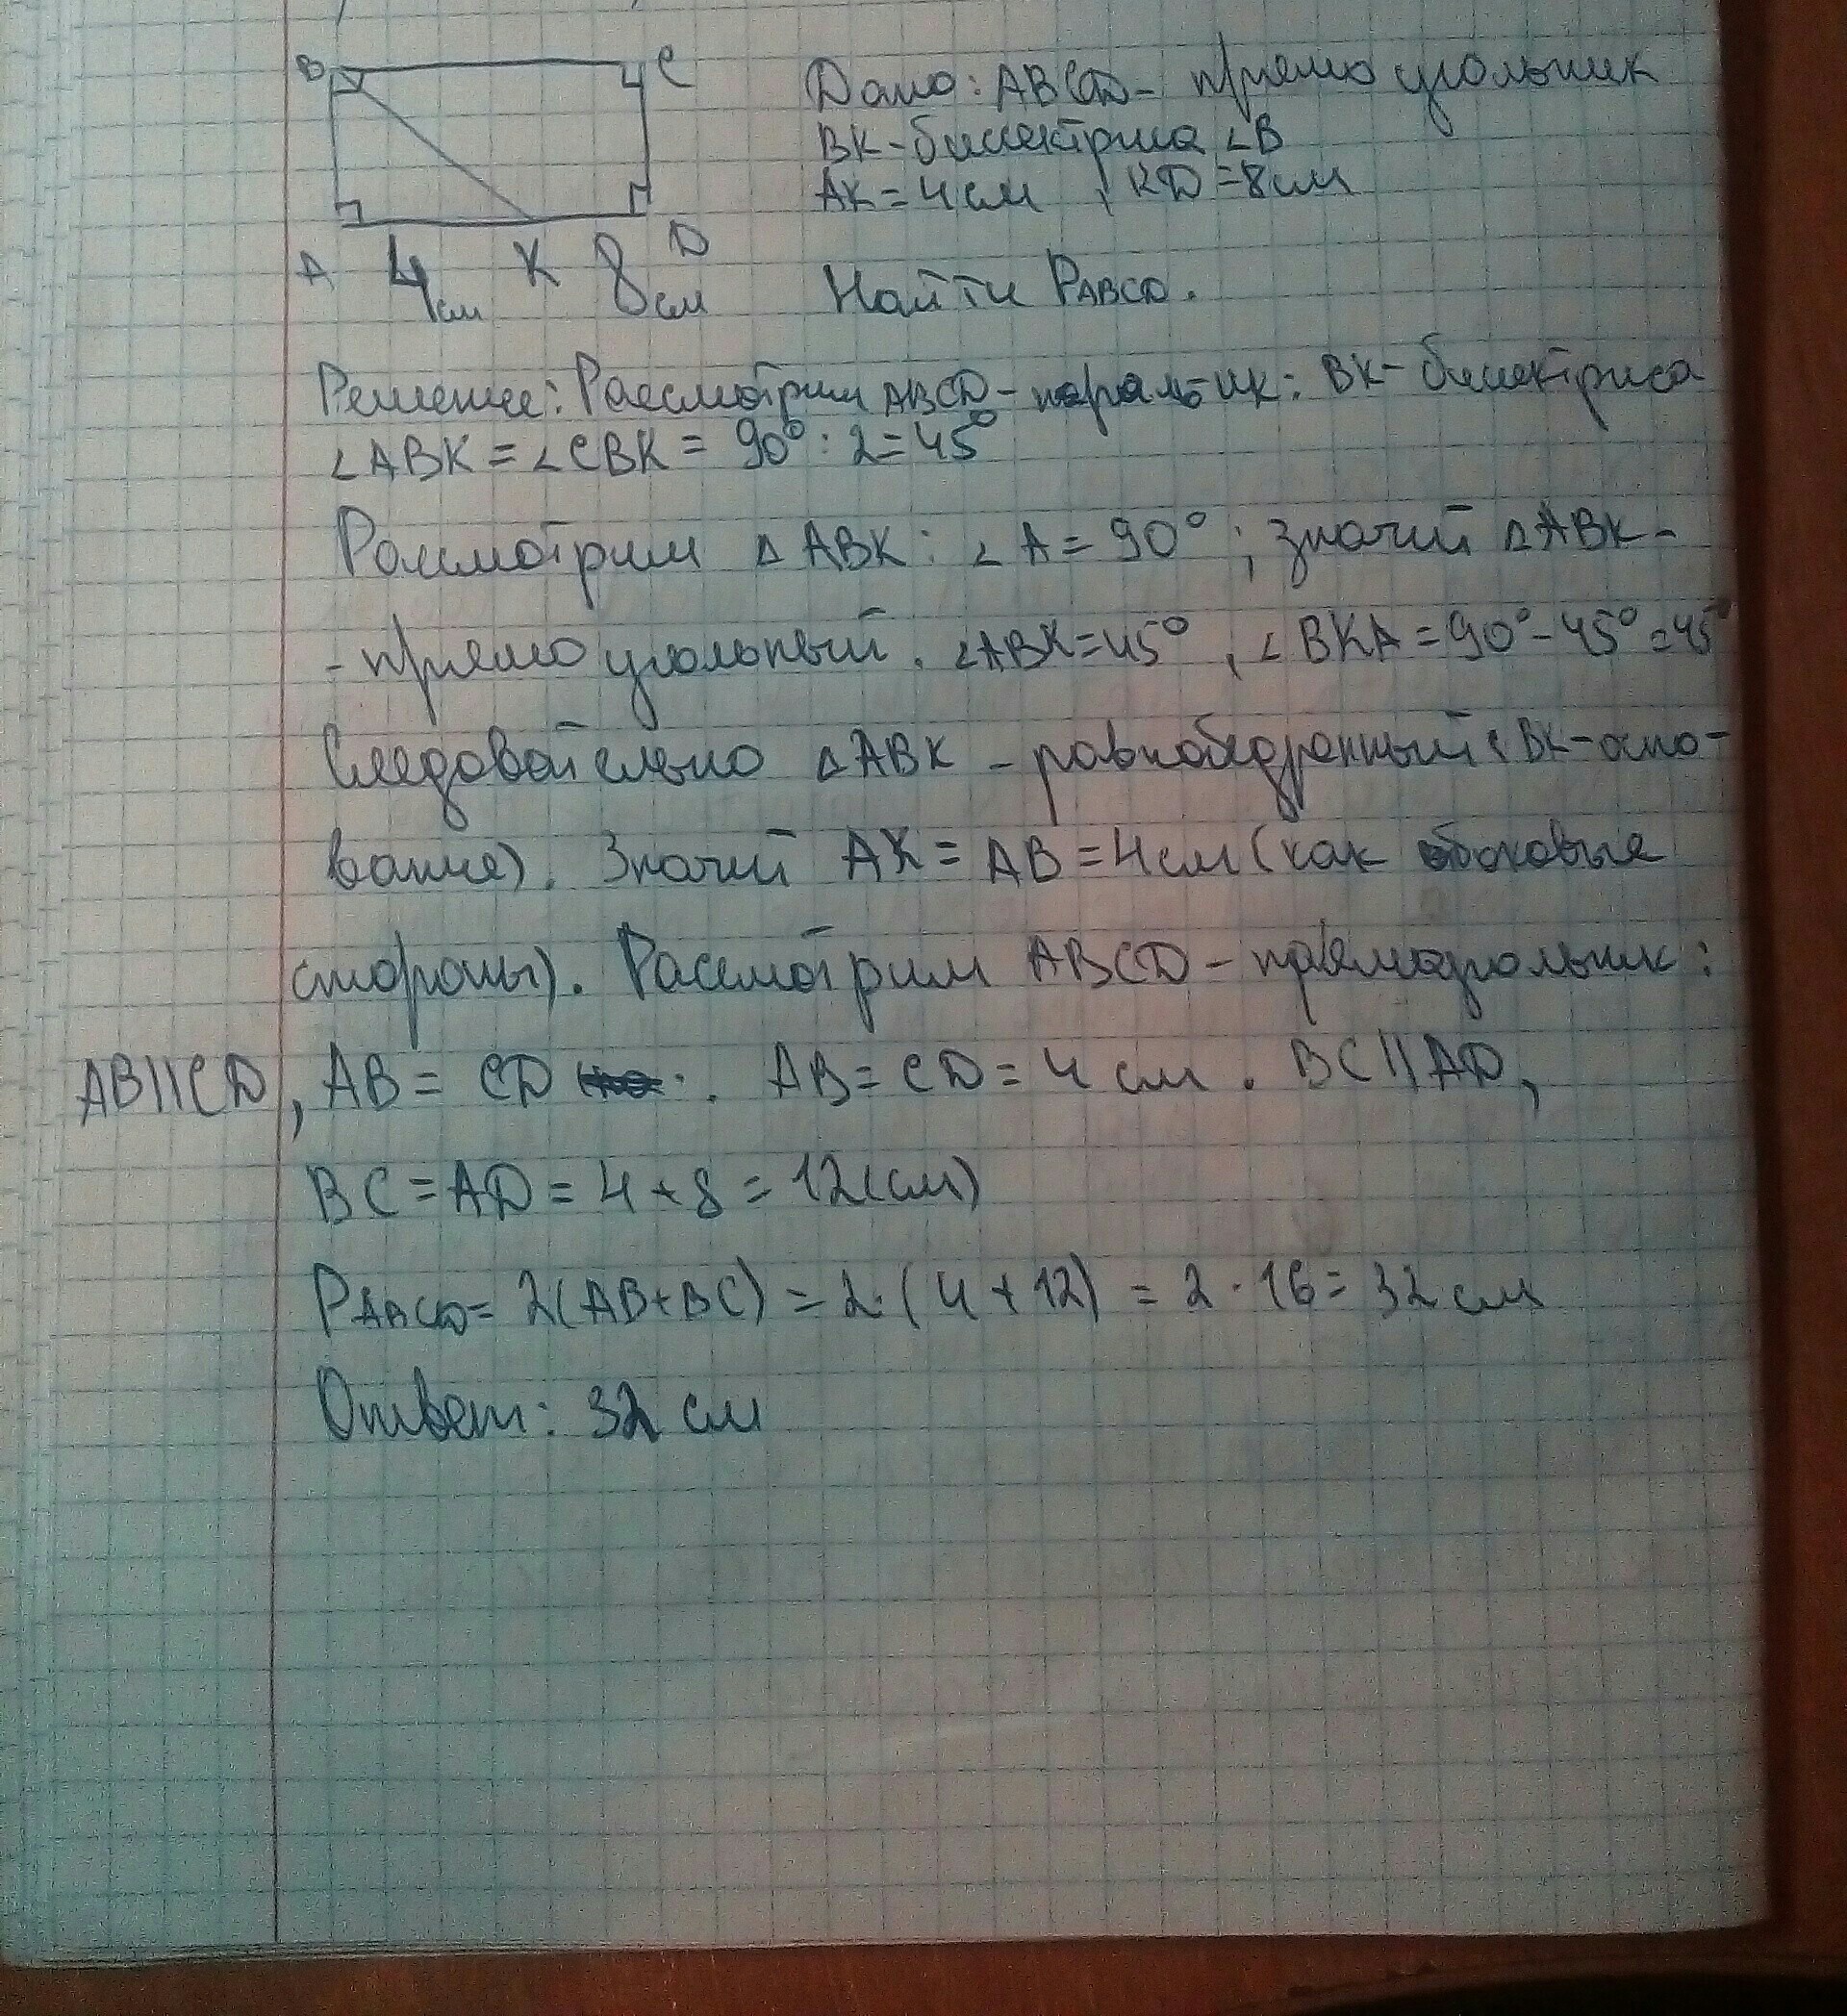 B C
Дано: ABCD - прямоугольник
BK - биссектриса ∠B
AK = 4 см , KD = 8 см
A 4 см K 8 см D
Найти PABCD.
Решение: Рассмотрим ABCD - : BK - биссектриса
∠ABK = ∠CBK = 90° : 2 = 45°
Рассмотрим △ ABK : ∠ A = 90° ; значит △ABK -
- прямоугольный. ∠ABK = 45° , ∠ BKA = 90° - 45° = 45°
Следовательно △ABK - равнобедренный (BK - осно-
вание). Значит AK = AB = 4 см (как боковые
стороны). Рассмотрим ABCD - прямоугольник :
AB || CD , AB = CD . AB = CD = 4 см . BC || AD ,
BC = AD = 4 + 8 = 12 (см)
PABCD = 2(AB + BC) = 2 · (4 + 12) = 2 · 16 = 32 см
Ответ : 32 см